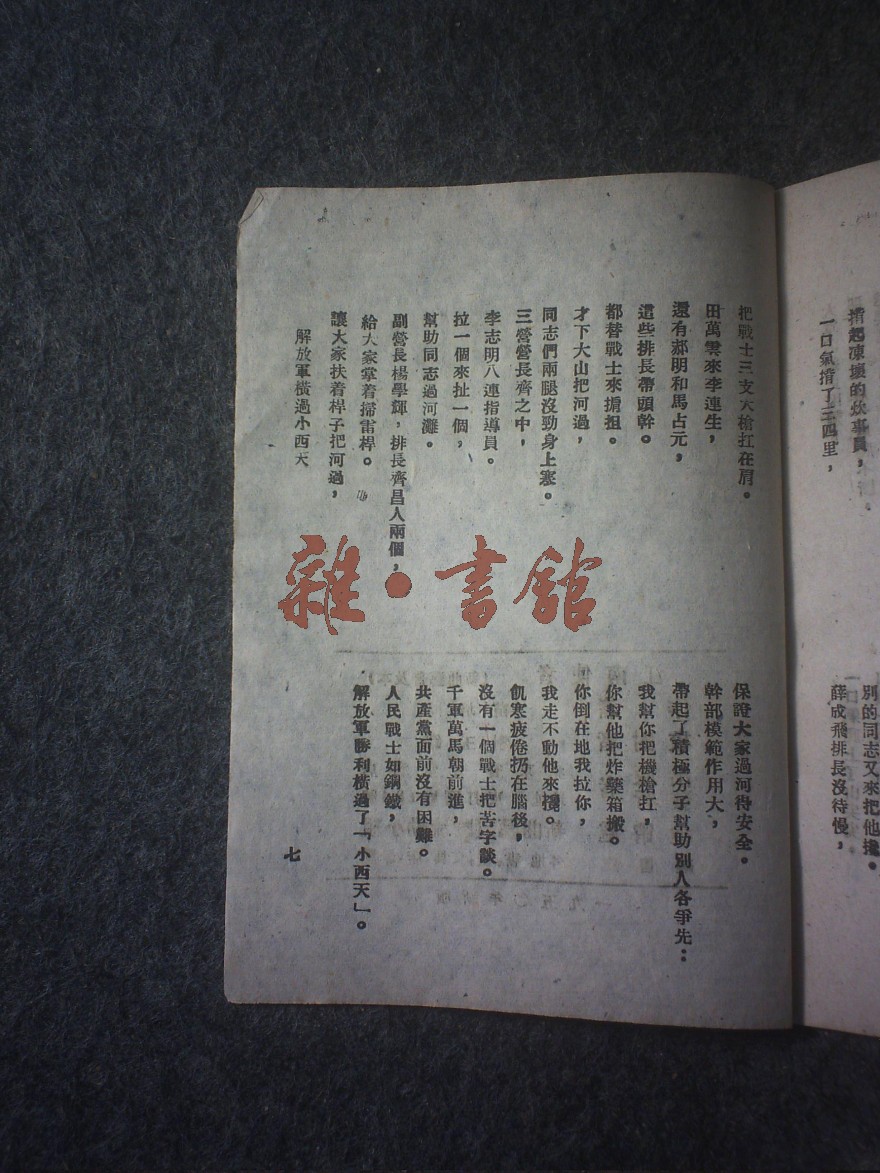 揹起凍壞的炊事員，
一口氣揹了三四里，
別的同志又來把他攙。
薛成飛排長沒待慢，
把戰士三支大槍扛在肩。
田萬雲來李連生，
還有郝明和馬占元，
這些排長帶頭幹。
都替戰士來擔担。
才下大山把河過，
同志們兩腿沒勁身上塞。
三營營長齊之中，
李志明八連指導員。
拉一個來扯一個，
幫助同志過河灘。
副營長楊學輝，排長齊昌人兩個，
給大家掌着掃雷桿。
讓大家扶着桿子把河過，
保證大家過河得安全。
幹部模範作用大，
帶起了積極分子幫助別人各爭先：
我幫你把機槍扛，
你幫他把炸藥箱搬。
你倒在地我拉你，
我走不動他來攙。
飢寒疲倦扔在腦後，
沒有一個戰士把苦字談。
千軍萬馬朝前進，
共產黨面前沒有困難。
人民戰士如鋼鐵，
解放軍勝利橫過了「小西天」。
解放軍橫過小西天
七
雜·書館
一九五〇年